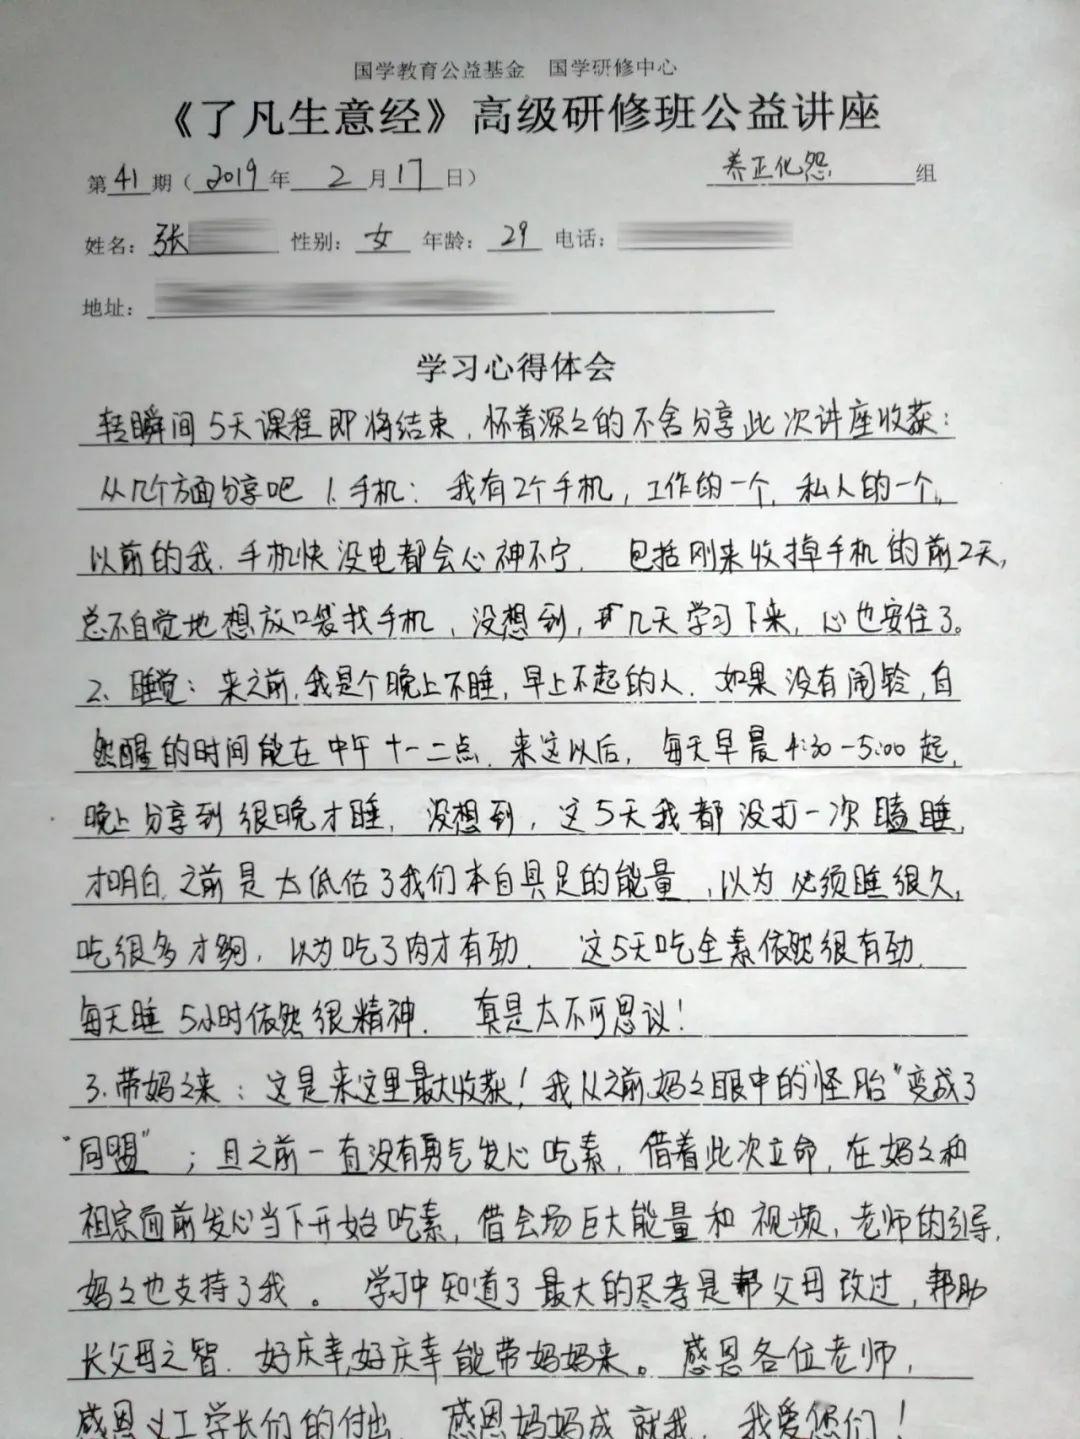 国学教育公益基金 国学研修中心
《了凡生意经》高级研修班公益讲座
第41期（2019年2月17日） 养正化怨组
姓名：张 性别：女 年龄：29 电话：
地址：
学习心得体会
转瞬间5天课程即将结束，怀着深々的不舍分享此次讲座收获：
从几个方面分享吧 1.手机：我有2个手机，工作的一个，私人的一个。
以前的我，手机快没电都会心神不宁．包括刚来收掉手机的前2天，
总不自觉地想放口袋找手机，没想到，几天学习下来，心也安住了。
2、睡觉：来之前，我是个晚上不睡，早上不起的人．如果没有闹铃，自
然醒的时间能在中午十一二点．来这以后，每天早晨4:30-5:00起，
晚上分享到很晚才睡，没想到，这5天我都没打一次瞌睡，
才明白，之前是太低估了我们本自具足的能量，以为必须睡很久，
吃很多才够，以为吃了肉才有劲．这5天吃全素依然很有劲．
每天睡5小时依然很精神．真是太不可思议！
3.带妈々来：这是来这里最大收获！我从之前妈々眼中的"怪胎"变成了
"同盟"；且之前一直没有勇气发心吃素，借着此次立命，在妈々和
祖宗面前发心当下开始吃素，借会场巨大能量和视频，老师的引导，
妈々也支持了我。学习中知道了最大的尽孝是帮父母改过，帮助
长父母之智．好庆幸，好庆幸能带妈妈来。感恩各位老师，
感恩义工学长们的付出，感恩妈妈成就我，我爱您们！